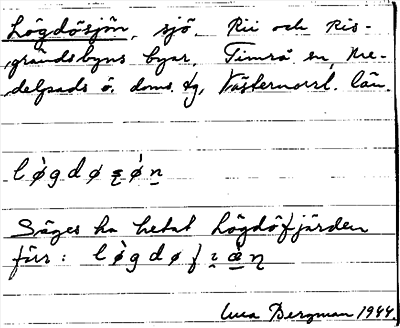 Lögdösjön, sjö. Rii och Ris-
grändsbyns byar, Timrå sn, Me-
delpads ö. doms. tg, Västernorrl. län.
lø̀gdøʂø̀n
Säges ha hetat Lögdöfjärden
förr: lø̀gdøfɩæ̀ṇ
Bergman 1944.